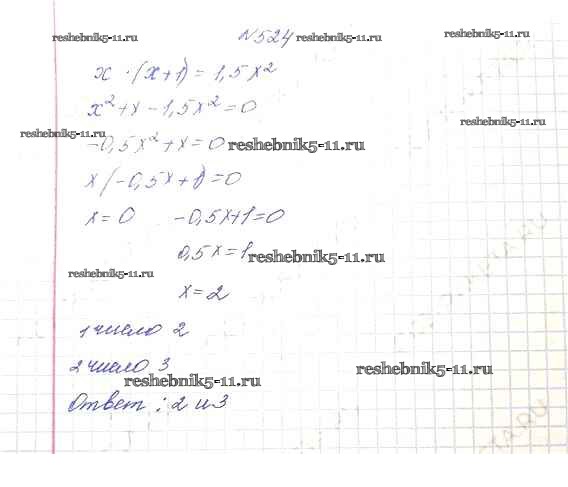 reshebnik5-11.ru №524 reshebnik5-11.ru reshebnik5-11.ru
x · (x+1) = 1,5x²
x² + x - 1,5x² = 0
reshebnik5-11.ru reshebnik5-11.ru
-0,5x² + x = 0 reshebnik5-11.ru
x(-0,5x+1)=0
x = 0 -0,5x+1=0
0,5x = 1 reshebnik5-11.ru
reshebnik5-11.ru
x = 2
1 число 2
2 число 3 reshebnik5-11.ru
reshebnik5-11.ru
Ответ: 2 и 3